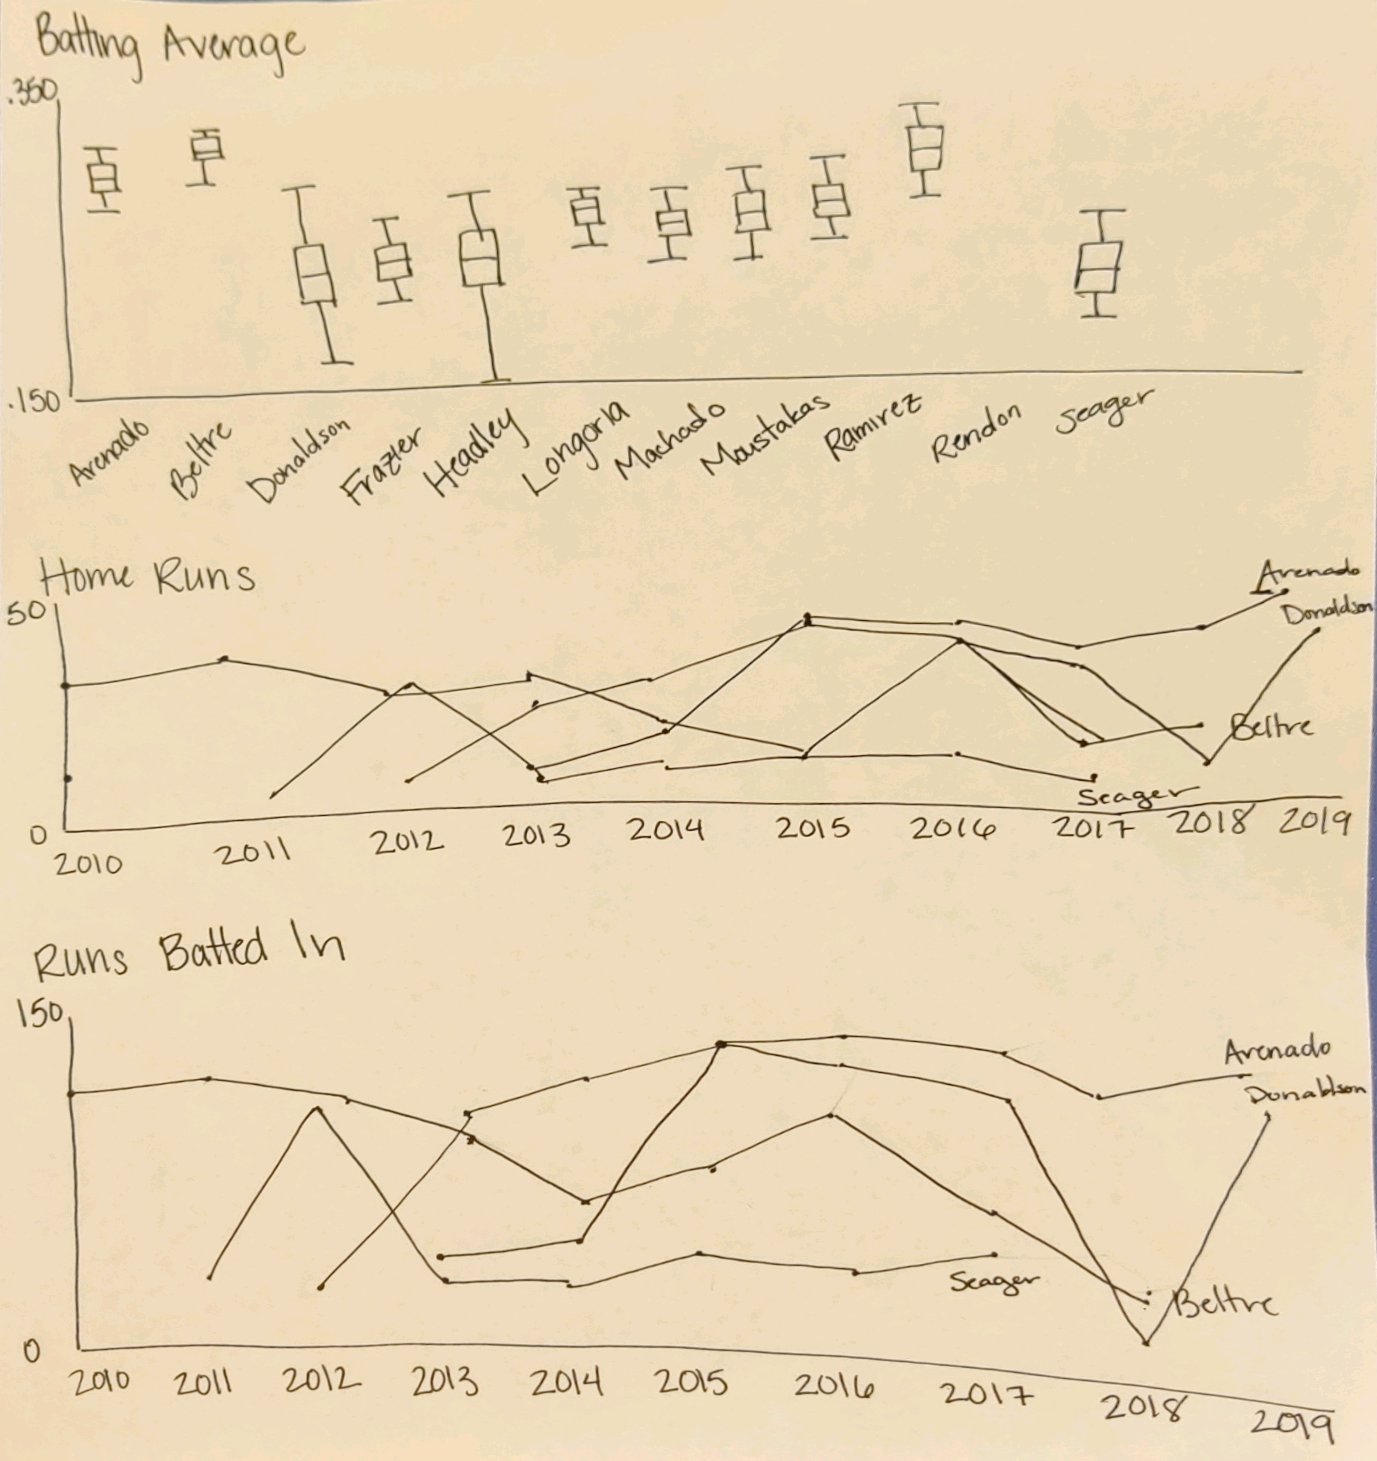 Batting Average
.350
.150
Arenado Beltre Donaldson Frazier Headley Longoria Machado Moustakas Ramirez Rendon Seager
Home Runs
50
Arenado
Donaldson
Beltre
Seager
0
2010 2011 2012 2013 2014 2015 2016 2017 2018 2019
Runs Batted In
150
Arenado
Donaldson
Seager
Beltre
0
2010 2011 2012 2013 2014 2015 2016 2017 2018 2019